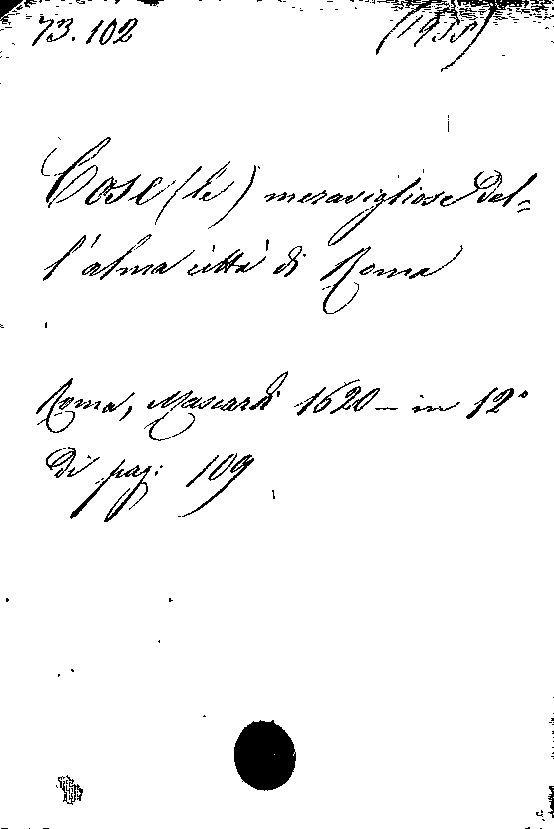 73.102 (1955)
Cose (le) meravigliose del=
l'alma città di Roma
Roma, Mascardi 1620 — in 12°
di pag: 109